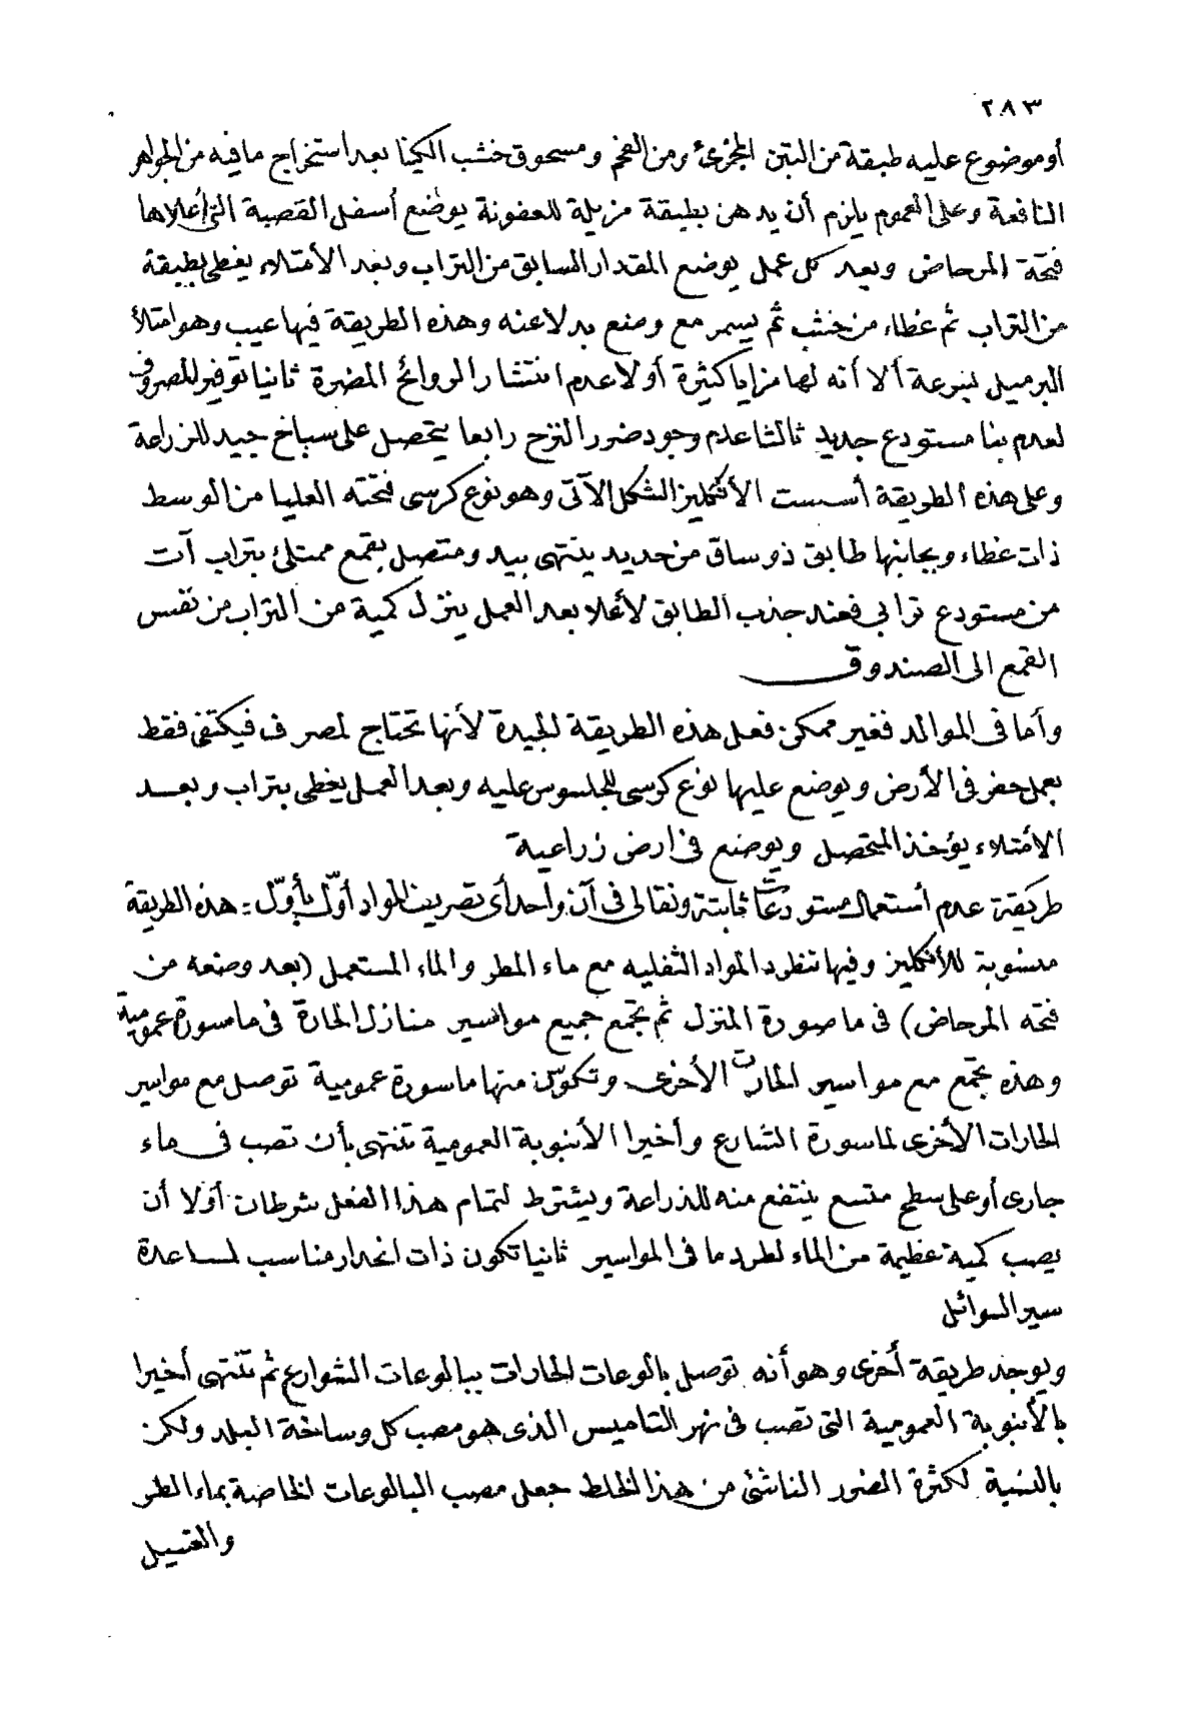 ٢٨٣
أو موضوع عليه طبقة من التبن المجزىء ومن الفحم ومسحوق خشب الكينا بعد استخراج ما فيه من الجواهر
النافعة وعلى العموم يلزم أن يدهن بطبقة مزيلة للعفونة يوضع أسفل القصبة التى أعلاها
فتحة المرحاض وبعد كل عمل يوضع المقدار السابق من التراب وبعد الأمتلاء يغطى بطبقة
من التراب ثم غطاء من خشب ثم يسمر مع وضع بدلا عنه وهذه الطريقة فيها عيب وهو امتلأ
البرميل بسرعة ألا أنه لها مزايا كثيرة أولا عدم انتشار الروائح المضرة ثانيا توفير للصروف
لعدم بنا مستودع جديد ثالثا عدم وجود ضرر النزح رابعا يتحصل على سباخ جيد للزراعة
وعلى هذه الطريقة أسست الأنكليز الشكل الآتى وهو نوع كرسى فتحته العليا من الوسط
ذات غطاء وبجانبها طابق ذو ساق من حديد ينتهى بيد ومتصل بقمع ممتلئ بتراب آت
من مستودع ترابى فعند جذب الطابق لأعلا بعد العمل ينزل كمية من التراب من نفس
القمع الى الصندوق
وأما فى الموالد فغير ممكن فعل هذه الطريقة الجيدة لأنها تحتاج لمصرف فيكتفى فقط
بعمل حفر فى الأرض ويوضع عليها نوع كرسى للجلوس عليه وبعد العمل يغطى بتراب وبعد
الأمتلاء يؤخذ المتحصل ويوضع فى ارض زراعية
طريقة عدم أستعمال مستودعات ثابتة ونقالى فى آن واحد أى تصريف المواد أول بأول = هذه الطريقة
منسوبة للأنكليز وفيها تطرد المواد الثفليه مع ماء المطر والماء المستعمل (بعد وضعه من
فتحه المرحاض) فى ماصورة المنزل ثم تجمع جميع مواسير منازل الحارة فى ماسورة عمومية
وهذه تجمع مع مواسير الحارات الأخرى وتكون منها ماسورة عمومية توصل مع مواسير
الحارات الأخرى لماسورة الشارع وأخيرا الأنبوبة العمومية تنتهى بأن تصب فى ماء
جارى أو على سطح متسع ينتفع منه للذراعة ويشترط لتمام هذا الفعل شرطان أولا أن
يصب كمية عظيمة من الماء لطرد ما فى المواسير ثانيا تكون ذات انحدار مناسب لمساعدة
سير السوائل
ويوجد طريقة أخرى وهو أنه توصل بالوعات الحارات ببالوعات الشوارع ثم تنتهى أخيرا
بالأنبوبة العمومية التى تصب فى نهر التاميس الذى هو مصب كل وساخة البلد ولكن
بالنسبة لكثرة الضرر الناشئ من هذا الخلط جعل مصب البالوعات الخاصة بماء المطر
والغسيل